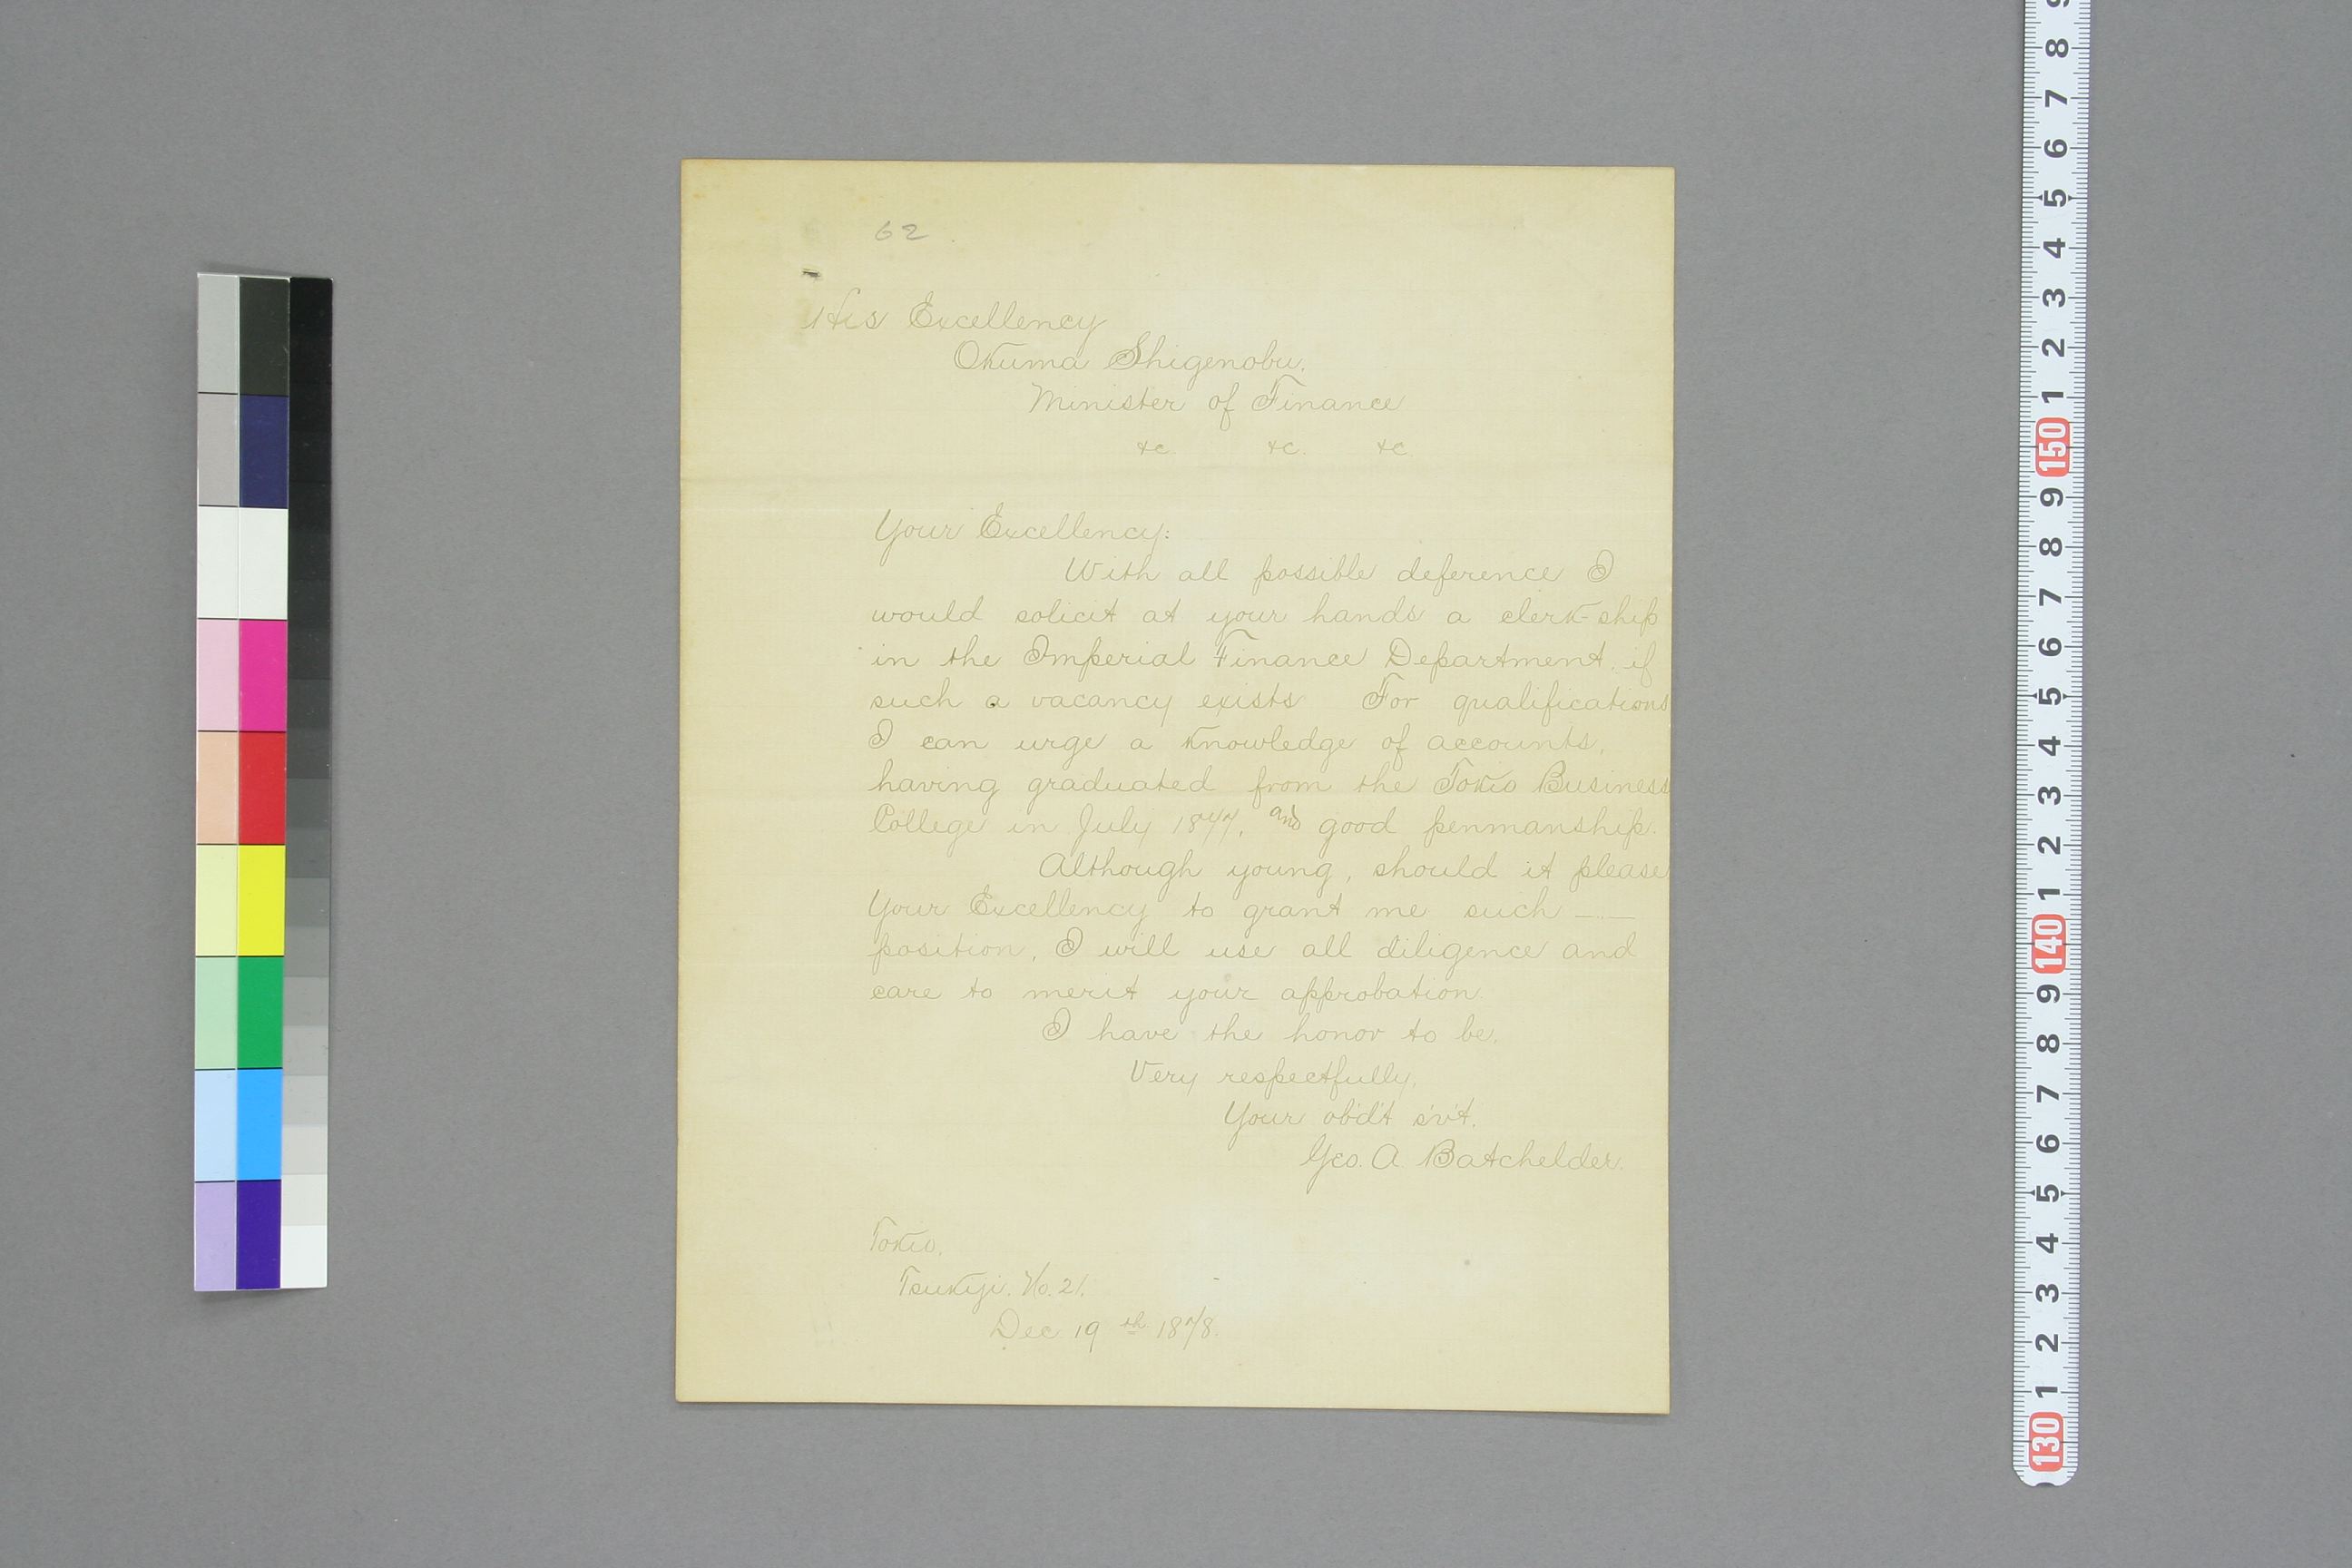 62
His Excellency
Okuma Shigenobu,
Minister of Finance
&c. &c. &c.
Your Excellency:
With all possible deference I
would solicit at your hands a clerk-ship
in the Imperial Finance Department, if
such a vacancy exists For qualifications
I can urge a knowledge of accounts,
having graduated from the Tokio Business
College in July 1877, and good penmanship.
Although young, should it please
Your Excellency to grant me such —
position, I will use all diligence and
care to merit your approbation
I have the honor to be,
Very respectfully,
Your ob'd't s'v't,
Geo. A. Batchelder.
Tokio,
Tsukiji, No. 21.
Dec 19th 1878.
9
8
7
6
5
4
3
2
1
150
9
8
7
6
5
4
3
2
1
140
9
8
7
6
5
4
3
2
1
130